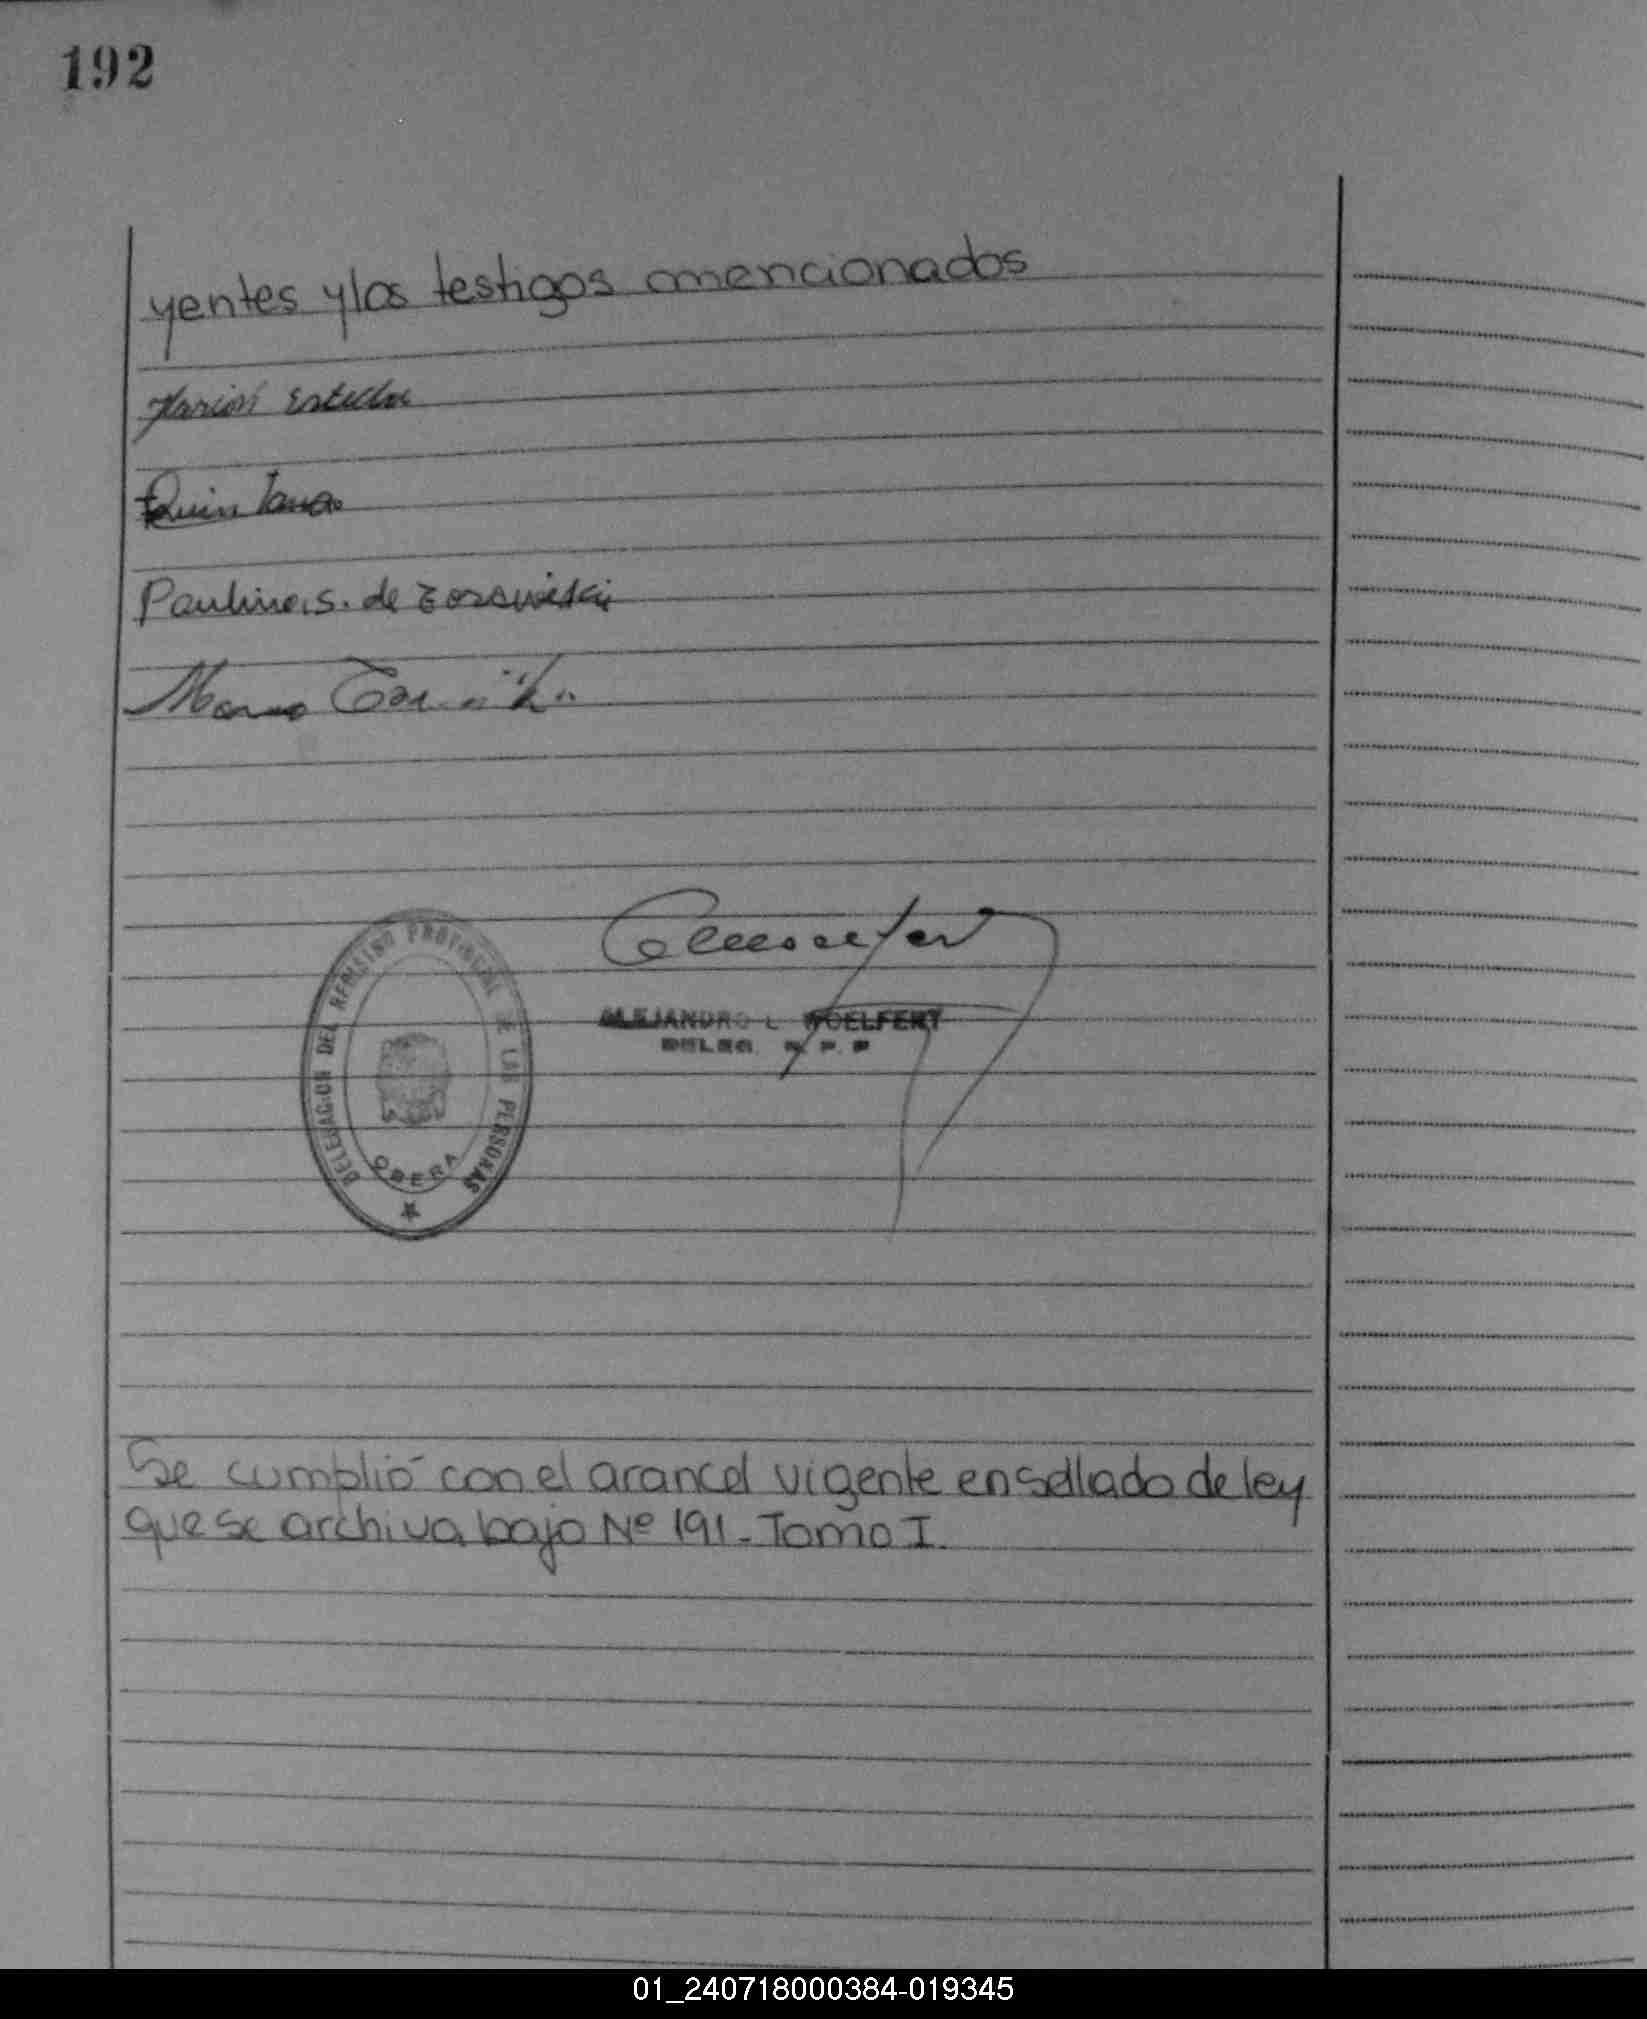 192
yentes y los testigos mencionados
Estela
Quintana
Paulina S. de Zorawiski
ALEJANDRO L WOELFERT
DELEG. R. P. P
DELEGACION DEL REGISTRO PROVINCIAL DE LAS PERSONAS
OBERA
Se cumplió con el arancel vigente en sellado de ley
que se archiva bajo Nº 191 - Tomo I.
01_240718000384-019345